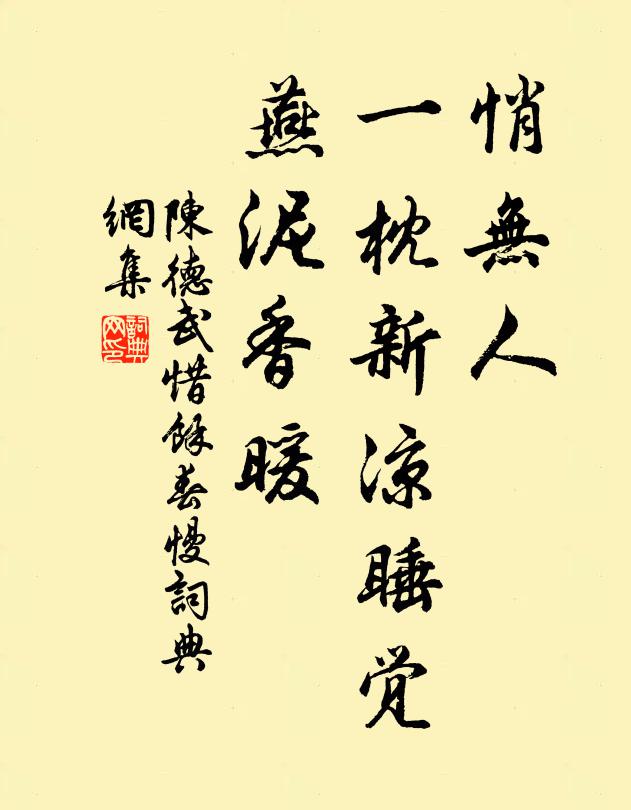 悄無人
一枕新涼睡覺
燕泥香暖
陳德武惜餘春慢詞典
網集
詞典
网印